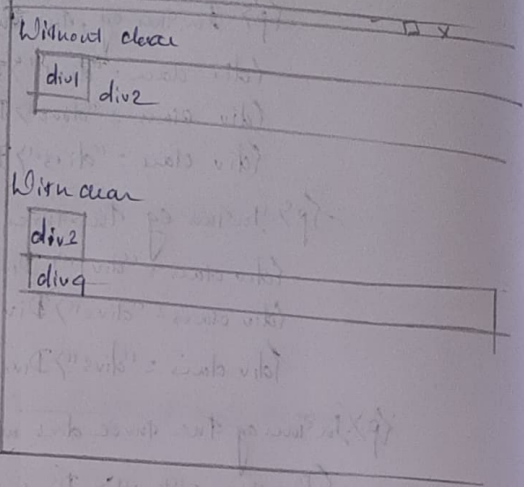 Without clear
div1 div2
With clear
div3
div4